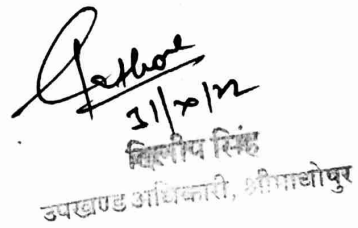 Rathore
31/x/22
दिलीप सिंह
उपखण्ड अधिकारी, श्रीमाधोपुर